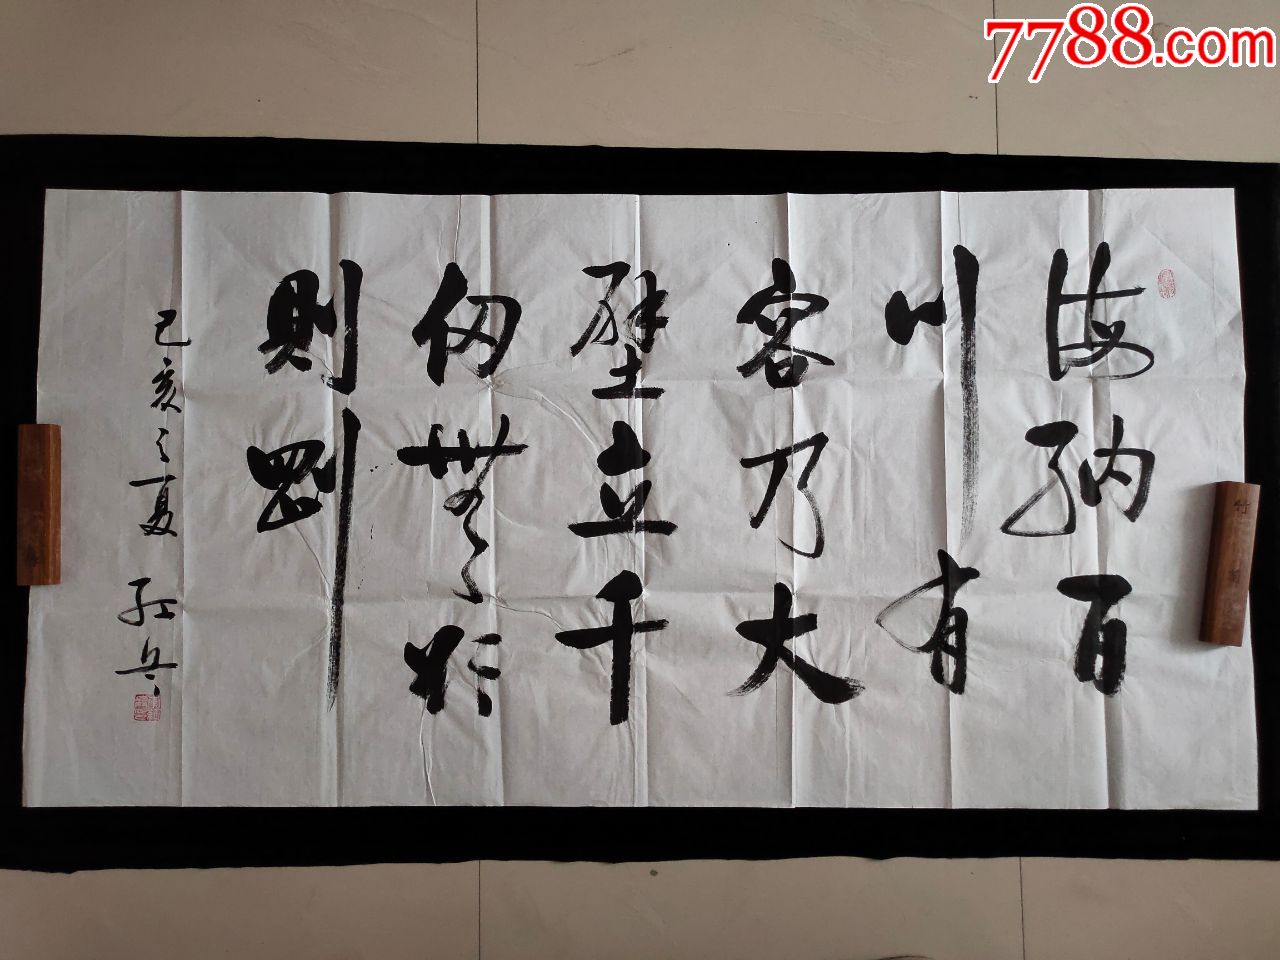 7788.com
海纳百
川有
容乃大
壁立千
仞無欲
則剛
己亥之夏
竹